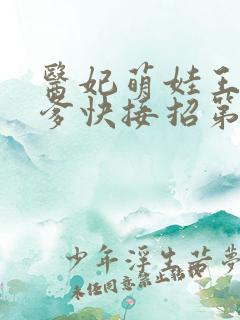 醫妃萌娃王
爹快接招第
少年浮生若夢
未经同意禁止转载